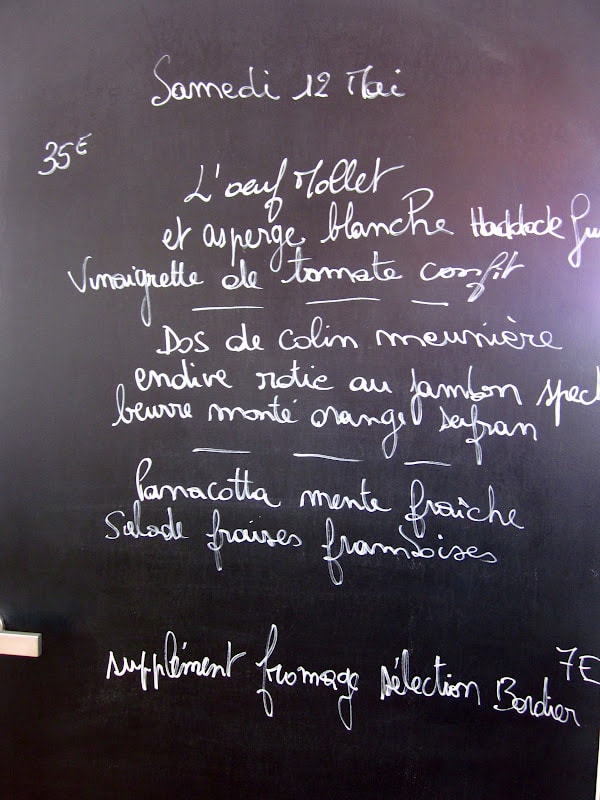 Samedi 12 Mai
35E
L'oeuf Mollet
et asperge blanche Haddock
Vinaigrette de tomate confit
Dos de colin meunière
endive rotie au jambon spec
beurre monté orange safran
Panacotta mente fraîche
Salade fraises framboises
7E
supplément fromage sélection Bordier